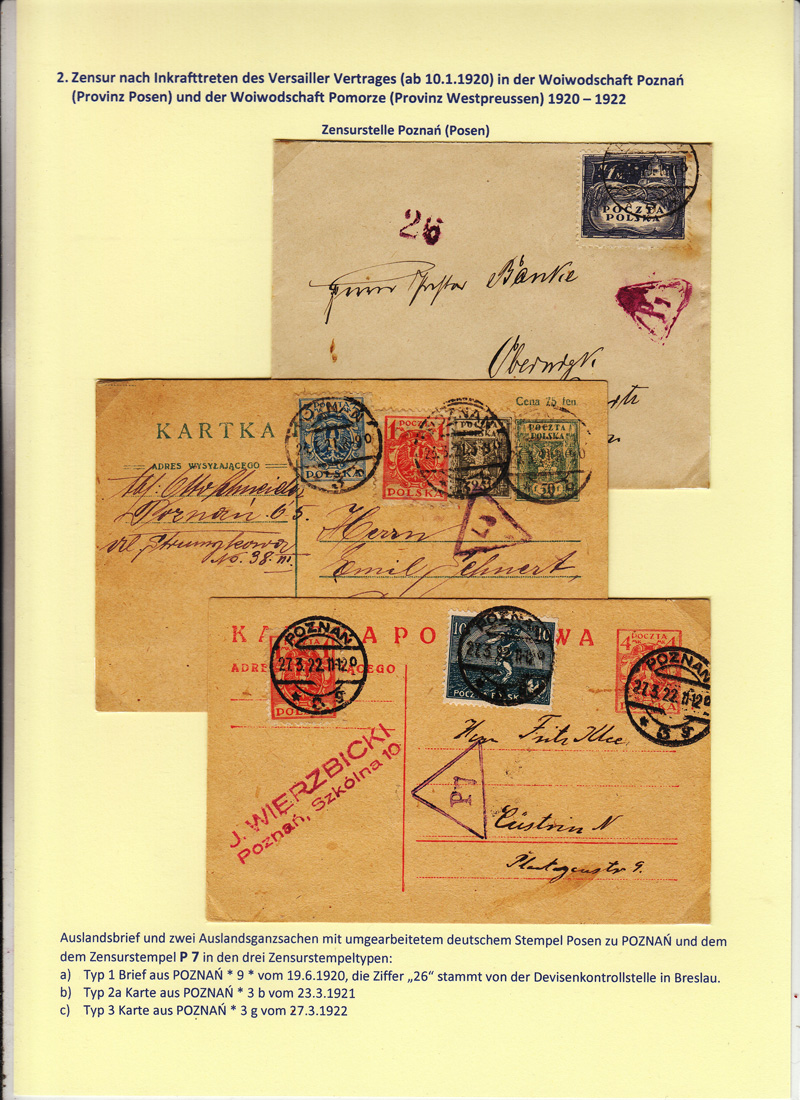 2. Zensur nach Inkrafttreten des Versailler Vertrages (ab 10.1.1920) in der Woiwodschaft Poznań
(Provinz Posen) und der Woiwodschaft Pomorze (Provinz Westpreussen) 1920 – 1922
Zensurstelle Poznań (Posen)
POCZTA
POLSKA
26
P7
Bänke
Cena 25 fen
KARTKA
ADRES WYSYŁAJĄCEGO
POZNAŃ
POLSKA
1
POLSKA
POZNAŃ
POCZTA
POLSKA
50
Otto Schneider
Poznań 65.
No. 38. III.
Herrn
Emil
KA A PO WA
ADRE ĄCEGO
POZNAŃ
27.3.22.11-12
* 3 g
POLSKA
10 10
POCZ SKA
POCZTA
4 4
POZNAŃ
27.3.22.11-12
* 3 g
J. WIERZBICKI
Poznań, Szkólna 10
P7
Herrn Fritz Klee
Cüstrin N
Auslandsbrief und zwei Auslandsganzsachen mit umgearbeitetem deutschem Stempel Posen zu POZNAŃ und dem
dem Zensurstempel P 7 in den drei Zensurstempeltypen:
a) Typ 1 Brief aus POZNAŃ * 9 * vom 19.6.1920, die Ziffer „26“ stammt von der Devisenkontrollstelle in Breslau.
b) Typ 2a Karte aus POZNAŃ * 3 b vom 23.3.1921
c) Typ 3 Karte aus POZNAŃ * 3 g vom 27.3.1922